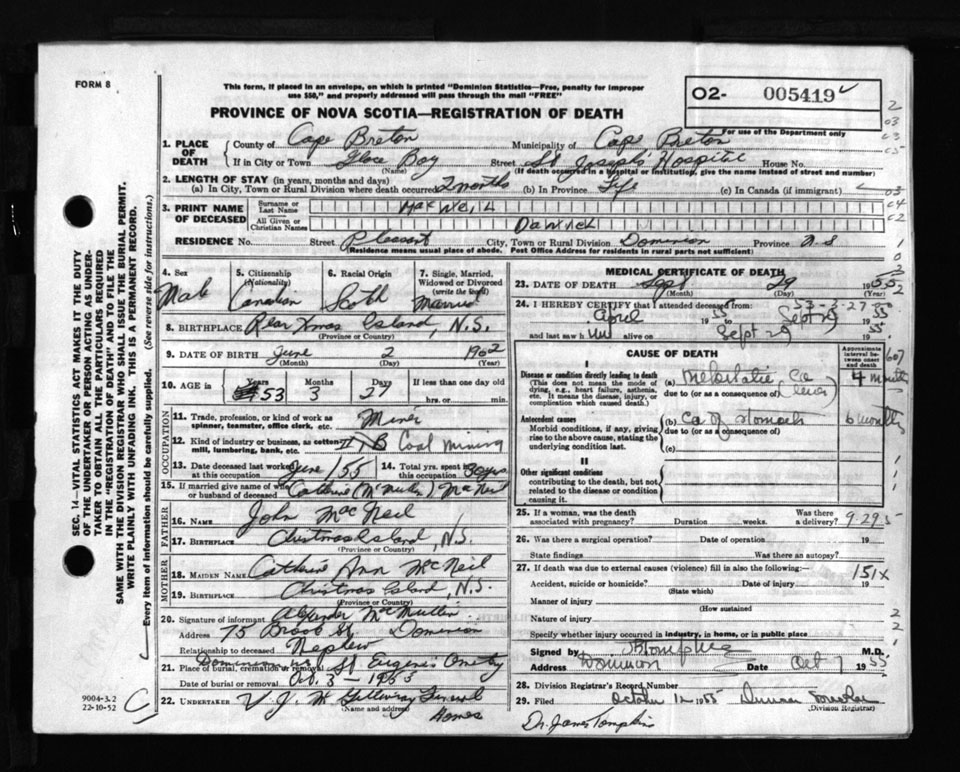 FORM 8
This form, if placed in an envelope, on which is printed "Dominion Statistics—Free, penalty for improper
use $50," and properly addressed will pass through the mail "FREE"
O2- 005419
For use of the Department only
PROVINCE OF NOVA SCOTIA—REGISTRATION OF DEATH
1. PLACE OF DEATH
County of Cape Breton Municipality of Cape Breton
If in City or Town Glace Bay (Name) Street St Joseph's Hospital House No.
(If death occurred in a hospital or institution, give the name instead of street and number)
2. LENGTH OF STAY (in years, months and days)
(a) In City, Town or Rural Division where death occurred 2 months (b) In Province Life (c) In Canada (if immigrant)
3. PRINT NAME OF DECEASED
Surname or Last Name
All Given or Christian Names
RESIDENCE No. Street Pleasant City, Town or Rural Division Dominion Province N.S
(Residence means usual place of abode. Post Office Address for residents in rural parts not sufficient)
4. Sex Male
5. Citizenship (Nationality) Canadian
6. Racial Origin Scotch
7. Single, Married, Widowed or Divorced (write the word) Married
8. BIRTHPLACE Rear Xmas Island, N.S.
(Province or Country)
9. DATE OF BIRTH June 2 1902
(Month) (Day) (Year)
10. AGE in Years 53 Months 3 Days 27 If less than one day old
hrs. or min.
OCCUPATION
11. Trade, profession, or kind of work as spinner, teamster, office clerk, etc. Miner
12. Kind of industry or business, as cotton mill, lumbering, bank, etc. B Coal Mining
13. Date deceased last worked at this occupation June/55
14. Total yrs. spent in this occupation 30 yrs
15. If married give name of wife or husband of deceased Catherine (McMullin) MacNeil
FATHER
16. NAME John MacNeil
17. BIRTHPLACE Christmas Island, N.S.
(Province or Country)
MOTHER
18. MAIDEN NAME Catherine Ann McNeil
19. BIRTHPLACE Christmas Island, N.S.
(Province or Country)
20. Signature of informant Alexander MacMullin
Address 75 Brook St Dominion
Relationship to deceased Nephew
21. Place of burial, cremation or removal Dominion St Eugene's
Date of burial or removal Oct. 3 - 1955
22. UNDERTAKER V. J. Funeral
(Name and address) Homes
MEDICAL CERTIFICATE OF DEATH
23. DATE OF DEATH Sept 29 1955
(Month) (Day)
24. I HEREBY CERTIFY that I attended deceased from:
April 1955 Sept 29 1955
and last saw h im alive on Sept 29 1955
CAUSE OF DEATH
Approximate interval between onset and death
I
Disease or condition directly leading to death
(This does not mean the mode of dying, e.g., heart failure, asthenia, etc. It means the disease, injury, or complication which caused death.)
(a) Metastatic Ca liver 4 months
due to (or as a consequence of)
Antecedent causes
Morbid conditions, if any, giving rise to the above cause, stating the underlying condition last.
(b) Ca of stomach 6 months
due to (or as a consequence of)
(c)
II
Other significant conditions
contributing to the death, but not related to the disease or condition causing it.
25. If a woman, was the death associated with pregnancy? Duration weeks. Was there a delivery? 9-29-5
26. Was there a surgical operation? Date of operation 19
State findings Was there an autopsy?
27. If death was due to external causes (violence) fill in also the following:—
151X
Accident, suicide or homicide? Date of injury 19
(State which)
Manner of injury
(How sustained
Nature of injury
Specify whether injury occurred in industry, in home, or in public place
Signed by M.D.
Address Dominion Date Oct 7 1955
28. Division Registrar's Record Number
29. Filed October 12 1955 Duncan
(Division Registrar)
Dr. James Tompkins
9004-3.2
22-10-52
C
SEC. 14—VITAL STATISTICS ACT MAKES IT THE DUTY
OF THE UNDERTAKER OR PERSON ACTING AS UNDER-
TAKER TO OBTAIN ALL THE PARTICULARS REQUIRED
IN THE "REGISTRATION OF DEATH" AND TO FILE THE
SAME WITH THE DIVISION REGISTRAR WHO SHALL ISSUE THE BURIAL PERMIT.
WRITE PLAINLY WITH UNFADING INK. THIS IS A PERMANENT RECORD.
Every item of information should be carefully supplied. (See reverse side for instructions.)